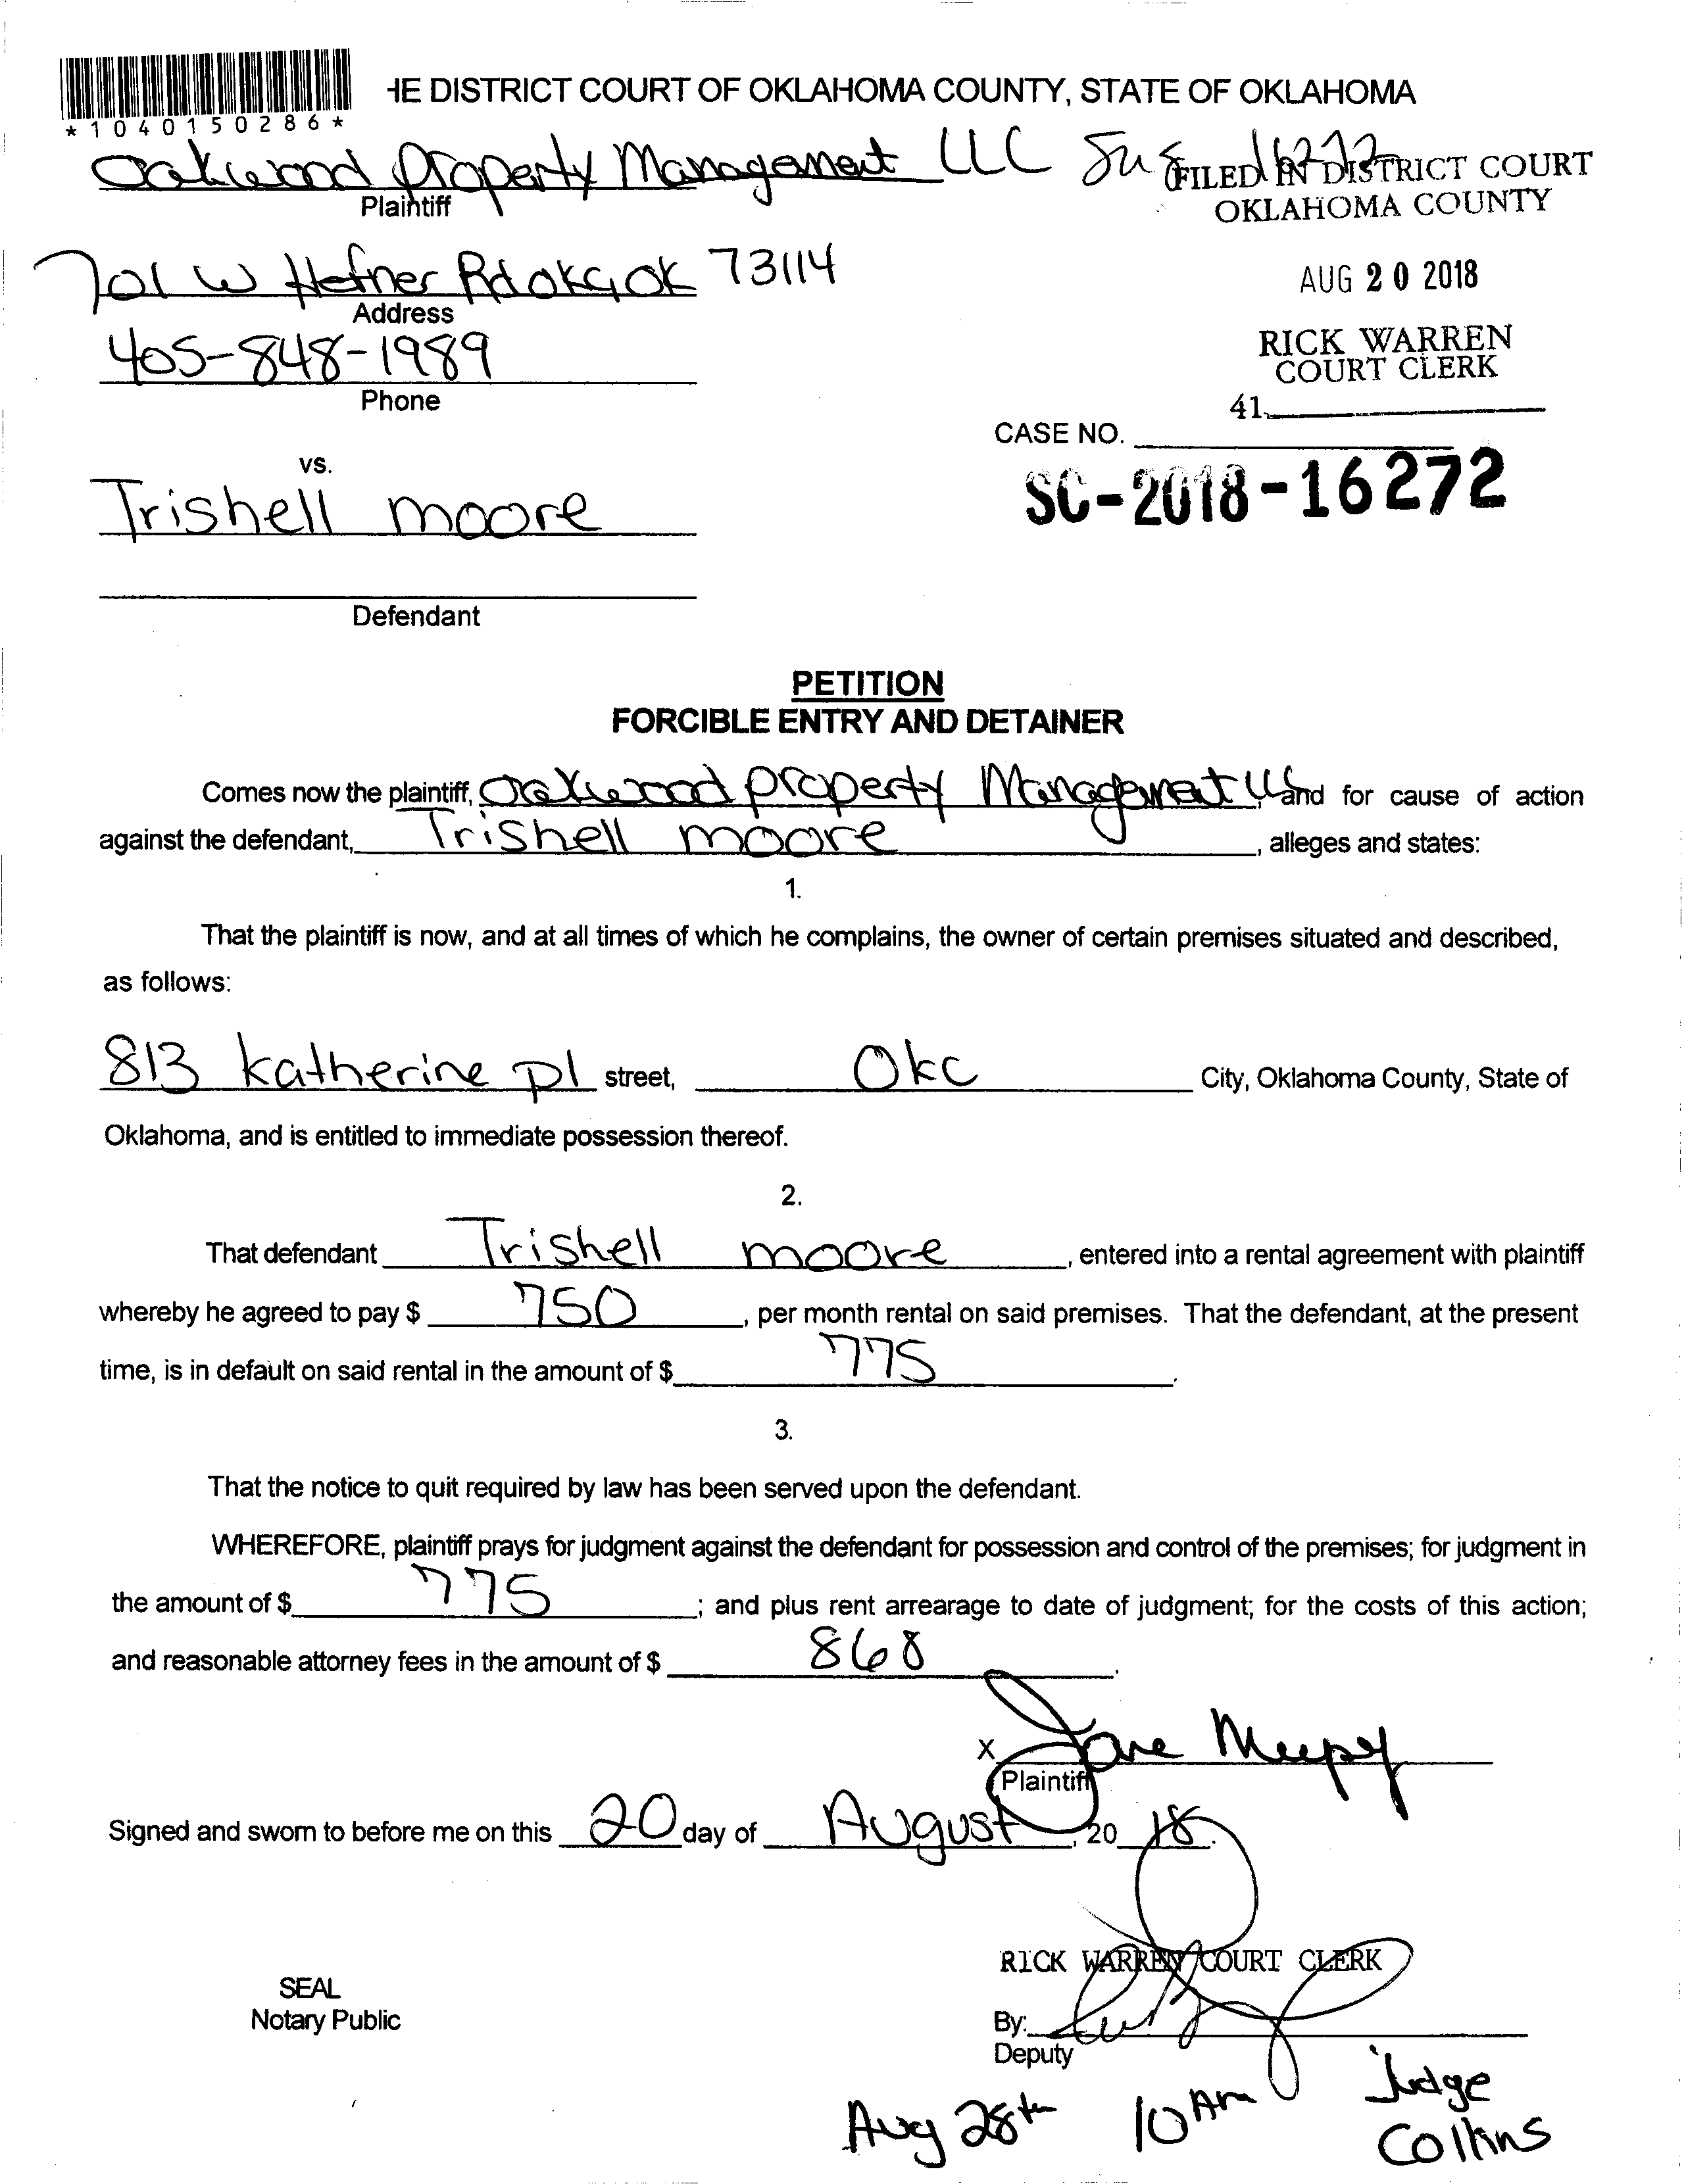 HE DISTRICT COURT OF OKLAHOMA COUNTY, STATE OF OKLAHOMA
*1040150286*
Oakwood Property Management LLC
FILED IN DISTRICT COURT
Plaintiff
OKLAHOMA COUNTY
701 W Hefner Rd OKC, OK 73114
AUG 20 2018
Address
RICK WARREN
COURT CLERK
405-848-1989
Phone
41
CASE NO.
SC-2018-16272
vs.
Trishell moore
Defendant
PETITION
FORCIBLE ENTRY AND DETAINER
Comes now the plaintiff, Oakwood property Management LLC, and for cause of action
against the defendant, Trishell moore, alleges and states:
1.
That the plaintiff is now, and at all times of which he complains, the owner of certain premises situated and described,
as follows:
813 katherine pl street, Okc City, Oklahoma County, State of
Oklahoma, and is entitled to immediate possession thereof.
2.
That defendant Trishell moore, entered into a rental agreement with plaintiff
whereby he agreed to pay $ 750, per month rental on said premises. That the defendant, at the present
time, is in default on said rental in the amount of $ 775.
3.
That the notice to quit required by law has been served upon the defendant.
WHEREFORE, plaintiff prays for judgment against the defendant for possession and control of the premises; for judgment in
the amount of $ 775; and plus rent arrearage to date of judgment; for the costs of this action;
and reasonable attorney fees in the amount of $ 868.
X Jane
Plaintiff
Signed and sworn to before me on this 20 day of August, 20 18.
RICK WARREN COURT CLERK
SEAL
Notary Public
By:
Deputy
Aug 28th 10 Am Judge
Collins